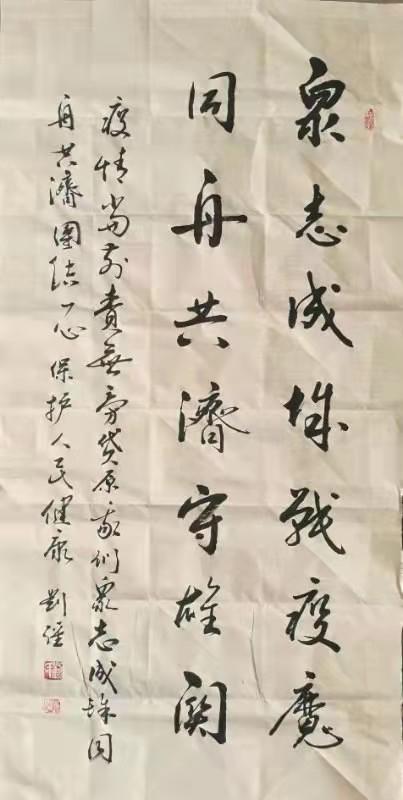 眾志成城戰疫魔
同舟共濟守雄關
疫情当前責無旁贷原我们眾志成城同
舟共濟團結一心保护人民健康 劉